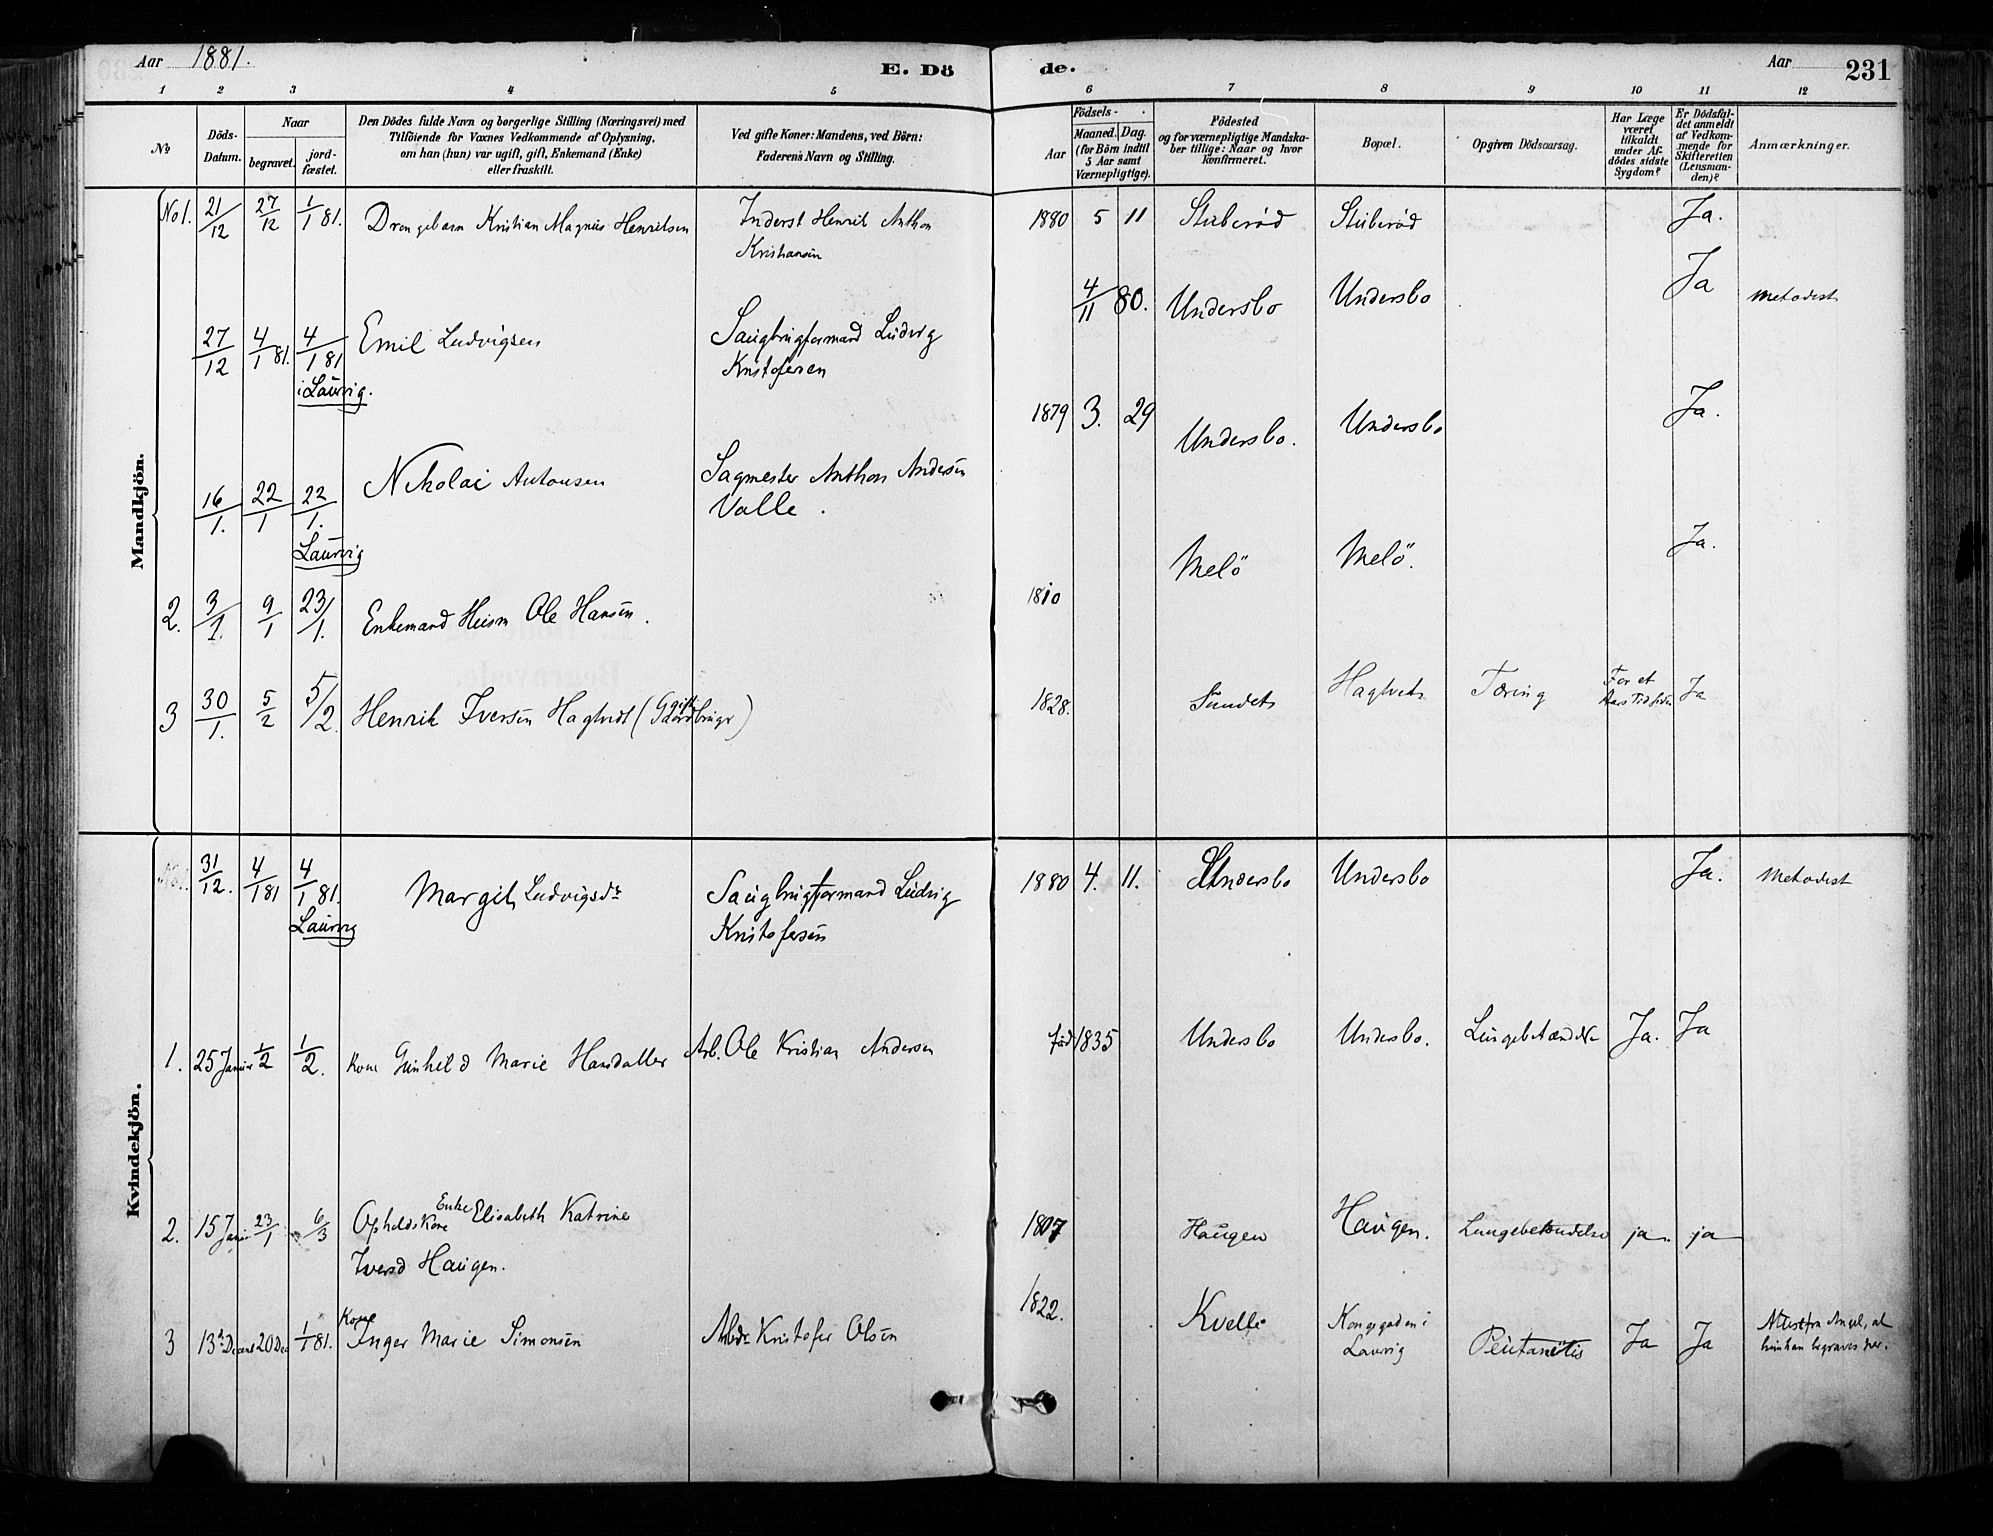 Aar 1881.
E. Dö
de.
Aar
231
1 2 3 4 5 6 7 8 9 10 11 12
No
Döds-
Datum.
Naar
begravet.
jord-
fæstet.
Den Dödes fulde Navn og borgerlige Stilling (Næringsvei) med
Tilföiende for Voxnes Vedkommende af Oplysning,
om han (hun) var ugift, gift, Enkemand (Enke)
eller fraskilt.
Ved gifte Koner: Mandens, ved Börn:
Faderens Navn og Stilling.
Födsels-
Aar
Maaned. Dag.
(for Börn indtil
5 Aar samt
Værnepligtige).
Födested
og for værnepligtige Mandska-
ber tillige: Naar og hvor
konfirmeret.
Bopæl.
Opgiven Dödsaarsag.
Har Læge
været
tilkaldt
under Af-
dödes sidste
Sygdom?
Er Dödsfal-
det anmeldt
af Vedkom-
mende for
Skifteretten
(Lensman-
den)?
Anmærkninger.
Mandkjön.
No 1. 21/12 27/12 1/1 81. Drengebarn Kristian Magnus Henriksen Inderst Henrik Anthon 1880 5 11 Stuberöd Stuberöd Ja.
Kristiansen
27/12 4/1 81. 4/1 81 Emil Ludvigsen Saugbrugformand Ludvig 4/11 80. Undersbo Undersbo Ja Metodist
i Laurvig. Kristofersen
16/1. 22/1 22/1. Nikolai Antonsen Sagmester Anthon Andersen 1879 3. 29 Undersbo. Undersbo Ja.
Laurvig Valle.
2. 3/1. 9/1 23/1. Enkemand Huism Ole Hansen. 1810 Melö Melö. Ja.
3 30/1. 5/2 5/2. Henrik Iversen Hagtvedt (gift Gaardbruger) 1828. Sundet Hagtvet Tæring For et Ja
Aars Tid siden
Kvindekjön.
No 1. 31/12. 4/1 81 4/1 81. Margit Ludvigsdr Saugbrugformand Ludvig 1880 4. 11. Undersbo Undersbo Ja. Metodist
Laurvig Kristofersen
1. 25 Januar 1/2 1/2. Kone Gunhild Marie Hansdatter Arb. Ole Kristian Andersen föd 1835 Undersbo Undersbo. Ja. Ja
2. 15 Januar 23/1 6/3 Opholdskone Enke Elisabeth Katrine 1807 Haugen Haugen. Lungebetændelse ja. ja
Iversd Haugen.
3 13de Decem 20 Dec 1/1 81. Kone Inger Marie Simonsen Arbdr Kristofer Olsen 1822. Kvelle Kongegaden i Ja Ja Attest fra Angel, at
Laurvig hun kan begraves her.